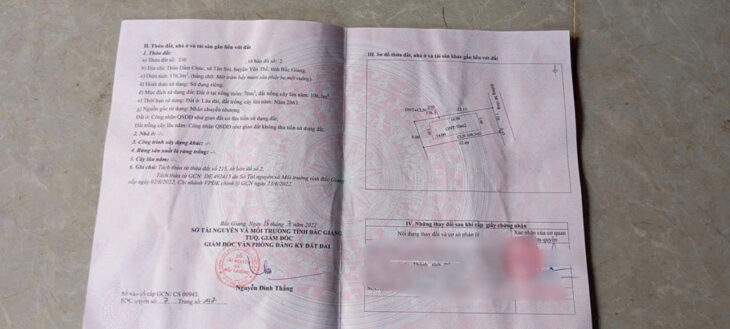 II. Thửa đất, nhà ở và tài sản gắn liền với đất
1. Thửa đất:
a) Thửa đất số: 230 tờ bản đồ số: 2
b) Địa chỉ: Thôn Đầm Chúc, xã Tân Sỏi, huyện Yên Thế, tỉnh Bắc Giang.
c) Diện tích: 176,3m², (bằng chữ: Một trăm bảy mươi sáu phẩy ba mét vuông)
d) Hình thức sử dụng: Sử dụng riêng.
đ) Mục đích sử dụng đất: Đất ở tại nông thôn: 70m²; đất trồng cây lâu năm: 106,3m².
e) Thời hạn sử dụng: Đất ở: Lâu dài, đất trồng cây lâu năm: Năm 2063.
g) Nguồn gốc sử dụng: Nhận chuyển nhượng.
Đất ở: Công nhận QSDĐ như giao đất có thu tiền sử dụng đất;
Đất trồng cây lâu năm: Công nhận QSDĐ như giao đất không thu tiền sử dụng đất.
2. Nhà ở: -/-.
3. Công trình xây dựng khác: -/-.
4. Rừng sản xuất là rừng trồng: -/-.
5. Cây lâu năm: -/-.
6. Ghi chú: Tách thửa từ thửa đất số 215, tờ bản đồ số 2.
Tách thửa từ GCN: DE 492415 do Sở Tài nguyên và Môi trường tỉnh Bắc Giang
cấp ngày 02/6/2022, Chi nhánh VPĐK chỉnh lý GCN ngày 21/6/2022.
Bắc Giang, ngày năm 2022
SỞ TÀI NGUYÊN VÀ MÔI TRƯỜNG TỈNH BẮC GIANG
TUQ. GIÁM ĐỐC
GIÁM ĐỐC VĂN PHÒNG ĐĂNG KÝ ĐẤT ĐAI
Nguyễn Đình Thắng
Số vào sổ cấp GCN: CS 00943.
Trang số:
III. Sơ đồ thửa đất, nhà ở và tài sản khác gắn liền với đất
ONT+CLN 230
176.3
ONT: 70m2
IV. Những thay đổi sau khi cấp giấy chứng nhận
Nội dung thay đổi và cơ sở pháp lý
Xác nhận của cơ quan
có thẩm quyền